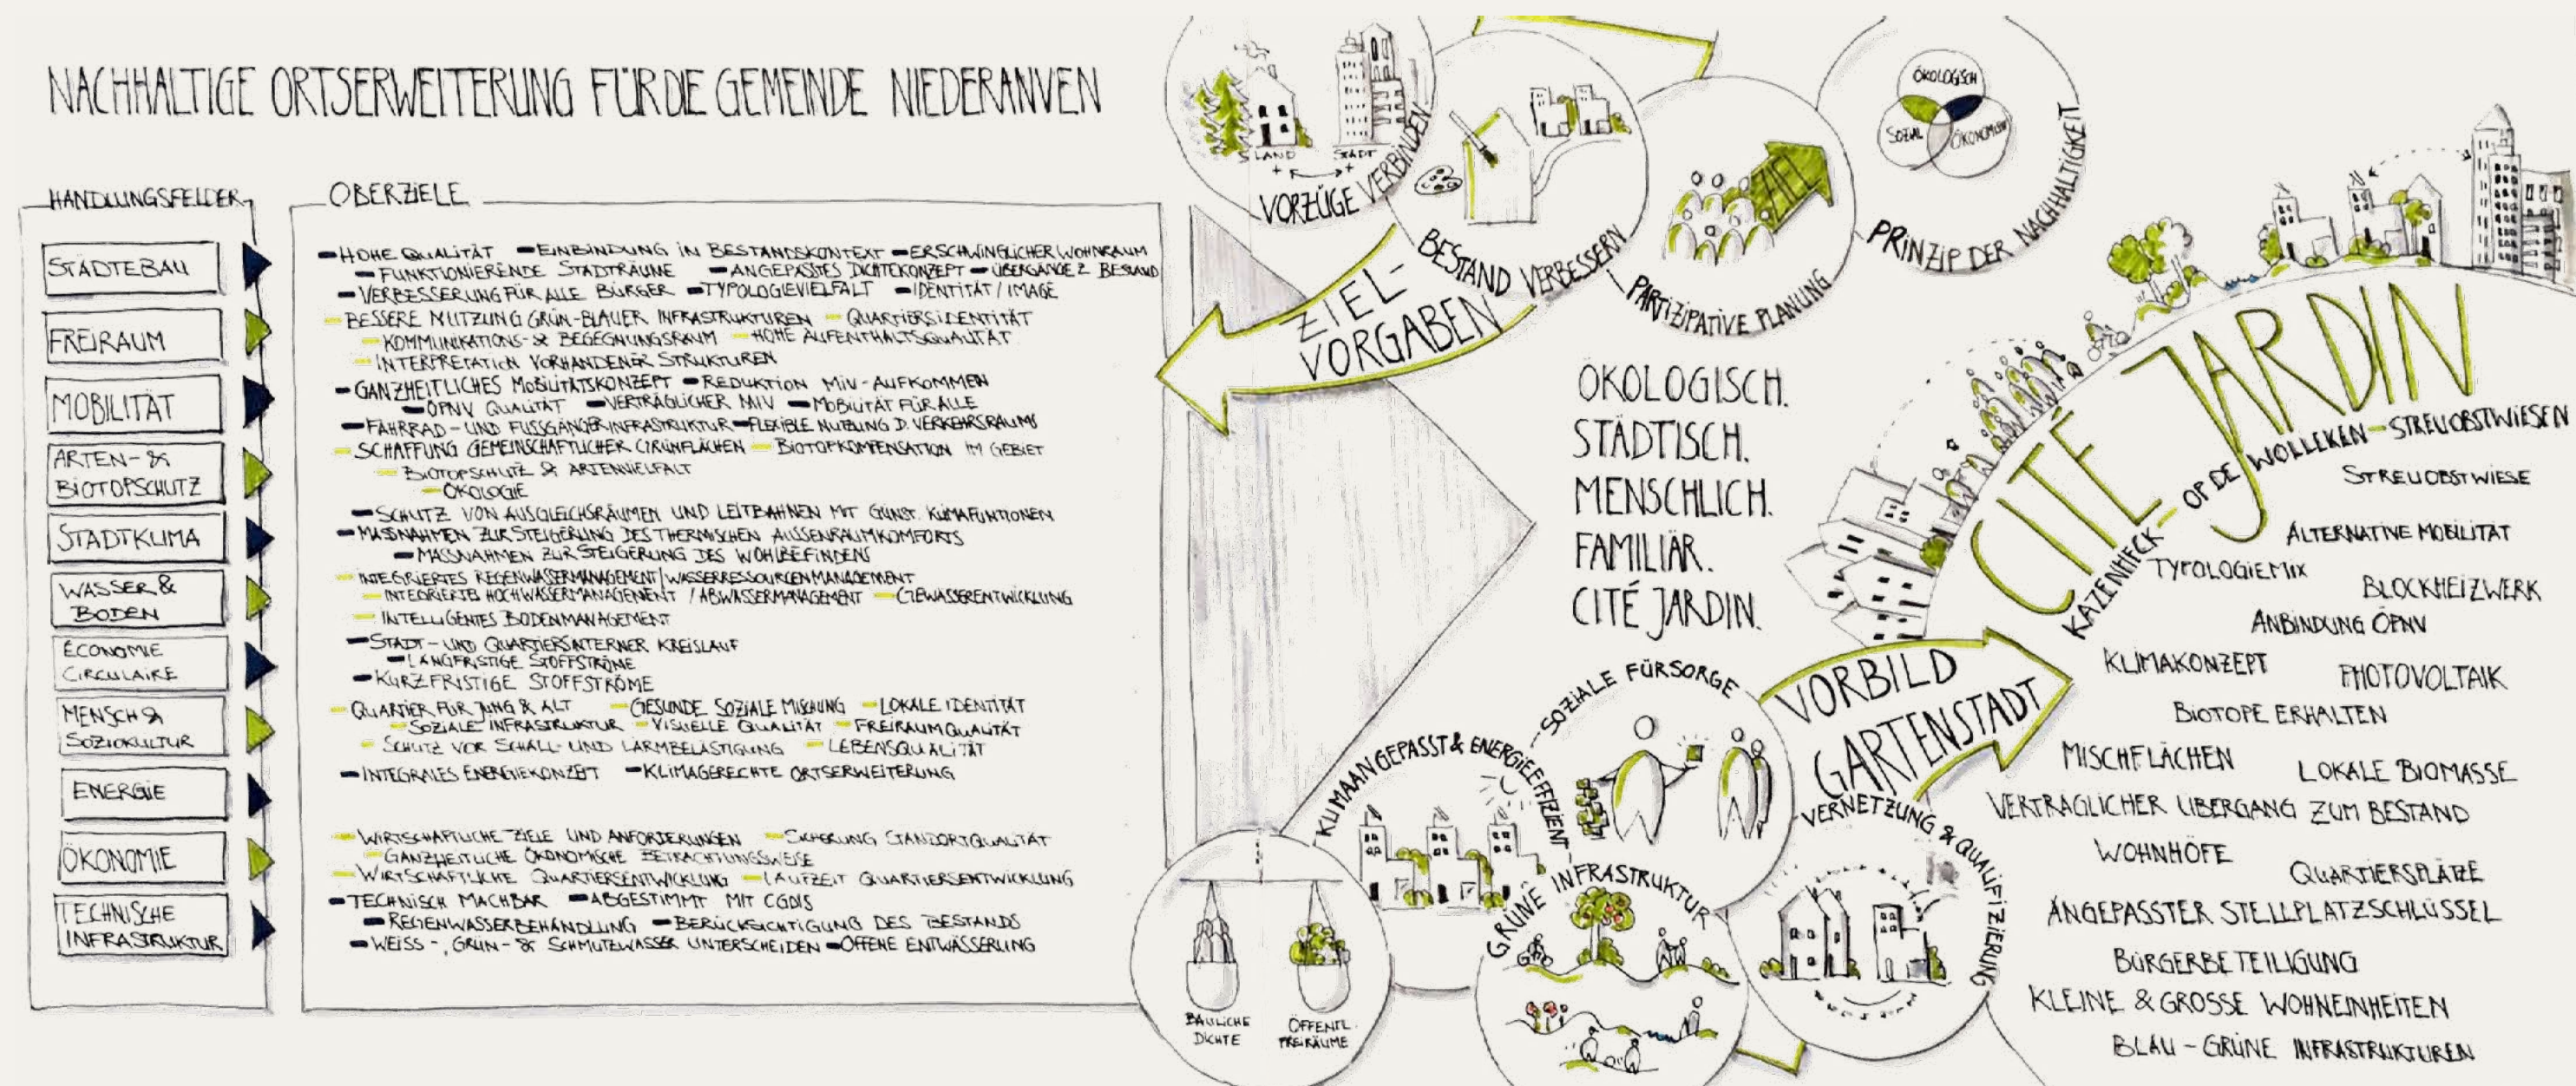 NACHHALTIGE ORTSERWEITERUNG FÜR DIE GEMEINDE NIEDERANVEN
HANDLUNGSFELDER
STÄDTEBAU
FREIRAUM
MOBILITÄT
ARTEN- &
BIOTOPSCHUTZ
STADTKLIMA
WASSER &
BODEN
ÉCONOMIE
CIRCULAIRE
MENSCH &
SOZIOKULTUR
ENERGIE
ÖKONOMIE
TECHNISCHE
INFRASTRUKTUR
OBERZIELE
- HOHE QUALITÄT - EINBINDUNG IN BESTANDSKONTEXT - ERSCHWINGLICHER WOHNRAUM
- FUNKTIONIERENDE STADTRÄUME - ANGEPASSTES DICHTEKONZEPT - ÜBERGÄNGE Z. BESTAND
- VERBESSERUNG FÜR ALLE BÜRGER - TYPOLOGIEVIELFALT - IDENTITÄT / IMAGE
- BESSERE NUTZUNG GRÜN-BLAUER INFRASTRUKTUREN - QUARTIERSIDENTITÄT
- KOMMUNIKATIONS- & BEGEGNUNGSRAUM - HOHE AUFENTHALTSQUALITÄT
- INTERPRETATION VORHANDENER STRUKTUREN
- GANZHEITLICHES MOBILITÄTSKONZEPT - REDUKTION MIV-AUFKOMMEN
- ÖPNV QUALITÄT - VERTRÄGLICHER MIV - MOBILITÄT FÜR ALLE
- FAHRRAD- UND FUSSGÄNGERINFRASTRUKTUR - FLEXIBLE NUTZUNG D. VERKEHRSRAUMS
- SCHAFFUNG GEMEINSCHAFTLICHER GRÜNFLÄCHEN - BIOTOPKOMPENSATION IM GEBIET
- BIOTOPSCHUTZ & ARTENVIELFALT
- ÖKOLOGIE
- SCHUTZ VON AUSGLEICHSRÄUMEN UND LEITBAHNEN MIT GÜNST. KLIMAFUNTIONEN
- MASSNAHMEN ZUR STEIGERUNG DES THERMISCHEN AUSSENRAUMKOMFORTS
- MASSNAHMEN ZUR STEIGERUNG DES WOHLBEFINDENS
- INTEGRIERTES REGENWASSERMANAGEMENT / WASSERRESSOURCENMANAGEMENT
- INTEGRIERTES HOCHWASSERMANAGEMENT / ABWASSERMANAGEMENT - GEWÄSSERENTWICKLUNG
- INTELLIGENTES BODENMANAGEMENT
- STADT- UND QUARTIERSINTERNER KREISLAUF
- LANGFRISTIGE STOFFSTRÖME
- KURZFRISTIGE STOFFSTRÖME
- QUARTIER FÜR JUNG & ALT - GESUNDE SOZIALE MISCHUNG - LOKALE IDENTITÄT
- SOZIALE INFRASTRUKTUR - VISUELLE QUALITÄT - FREIRAUMQUALITÄT
- SCHUTZ VOR SCHALL- UND LÄRMBELÄSTIGUNG - LEBENSQUALITÄT
- INTEGRALES ENERGIEKONZEPT - KLIMAGERECHTE ORTSERWEITERUNG
- WIRTSCHAFTLICHE ZIELE UND ANFORDERUNGEN - SICHERUNG STANDORTQUALITÄT
- GANZHEITLICHE ÖKONOMISCHE BETRACHTUNGSWEISE
- WIRTSCHAFTLICHE QUARTIERSENTWICKLUNG - LAUFZEIT QUARTIERSENTWICKLUNG
- TECHNISCH MACHBAR - ABGESTIMMT MIT CGDIS
- REGENWASSERBEHANDLUNG - BERÜCKSICHTIGUNG DES BESTANDS
- WEISS-, GRÜN- & SCHMUTZWASSER UNTERSCHEIDEN - OFFENE ENTWÄSSERUNG
LAND
STADT
VORZÜGE VERBINDEN
BESTAND VERBESSERN
PARTIZIPATIVE PLANUNG
ÖKOLOGISCH
SOZIAL
ÖKONOMISCH
PRINZIP DER NACHHALTIGKEIT
ZIEL-
VORGABEN
ÖKOLOGISCH.
STÄDTISCH.
MENSCHLICH.
FAMILIÄR.
CITÉ JARDIN.
SOZIALE FÜRSORGE
KLIMAANGEPASST & ENERGIEEFFIZIENT
GRÜNE INFRASTRUKTUR
VERNETZUNG & QUALIFIZIERUNG
BAULICHE
DICHTE
ÖFFENTL.
FREIRÄUME
VORBILD
GARTENSTADT
CITÉ JARDIN
KAZENHECK - OP DE WOLLEKEN - STREUOBSTWIESEN
STREUOBSTWIESE
ALTERNATIVE MOBILITÄT
TYPOLOGIEMIX
BLOCKHEIZWERK
ANBINDUNG ÖPNV
KLIMAKONZEPT
PHOTOVOLTAIK
BIOTOPE ERHALTEN
MISCHFLÄCHEN
LOKALE BIOMASSE
VERTRÄGLICHER ÜBERGANG ZUM BESTAND
WOHNHÖFE
QUARTIERSPLÄTZE
ANGEPASSTER STELLPLATZSCHLÜSSEL
BÜRGERBETEILIGUNG
KLEINE & GROSSE WOHNEINHEITEN
BLAU-GRÜNE INFRASTRUKTUREN